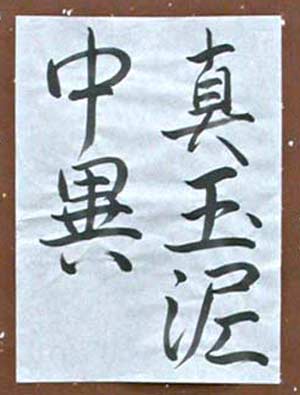 真玉泥
中異